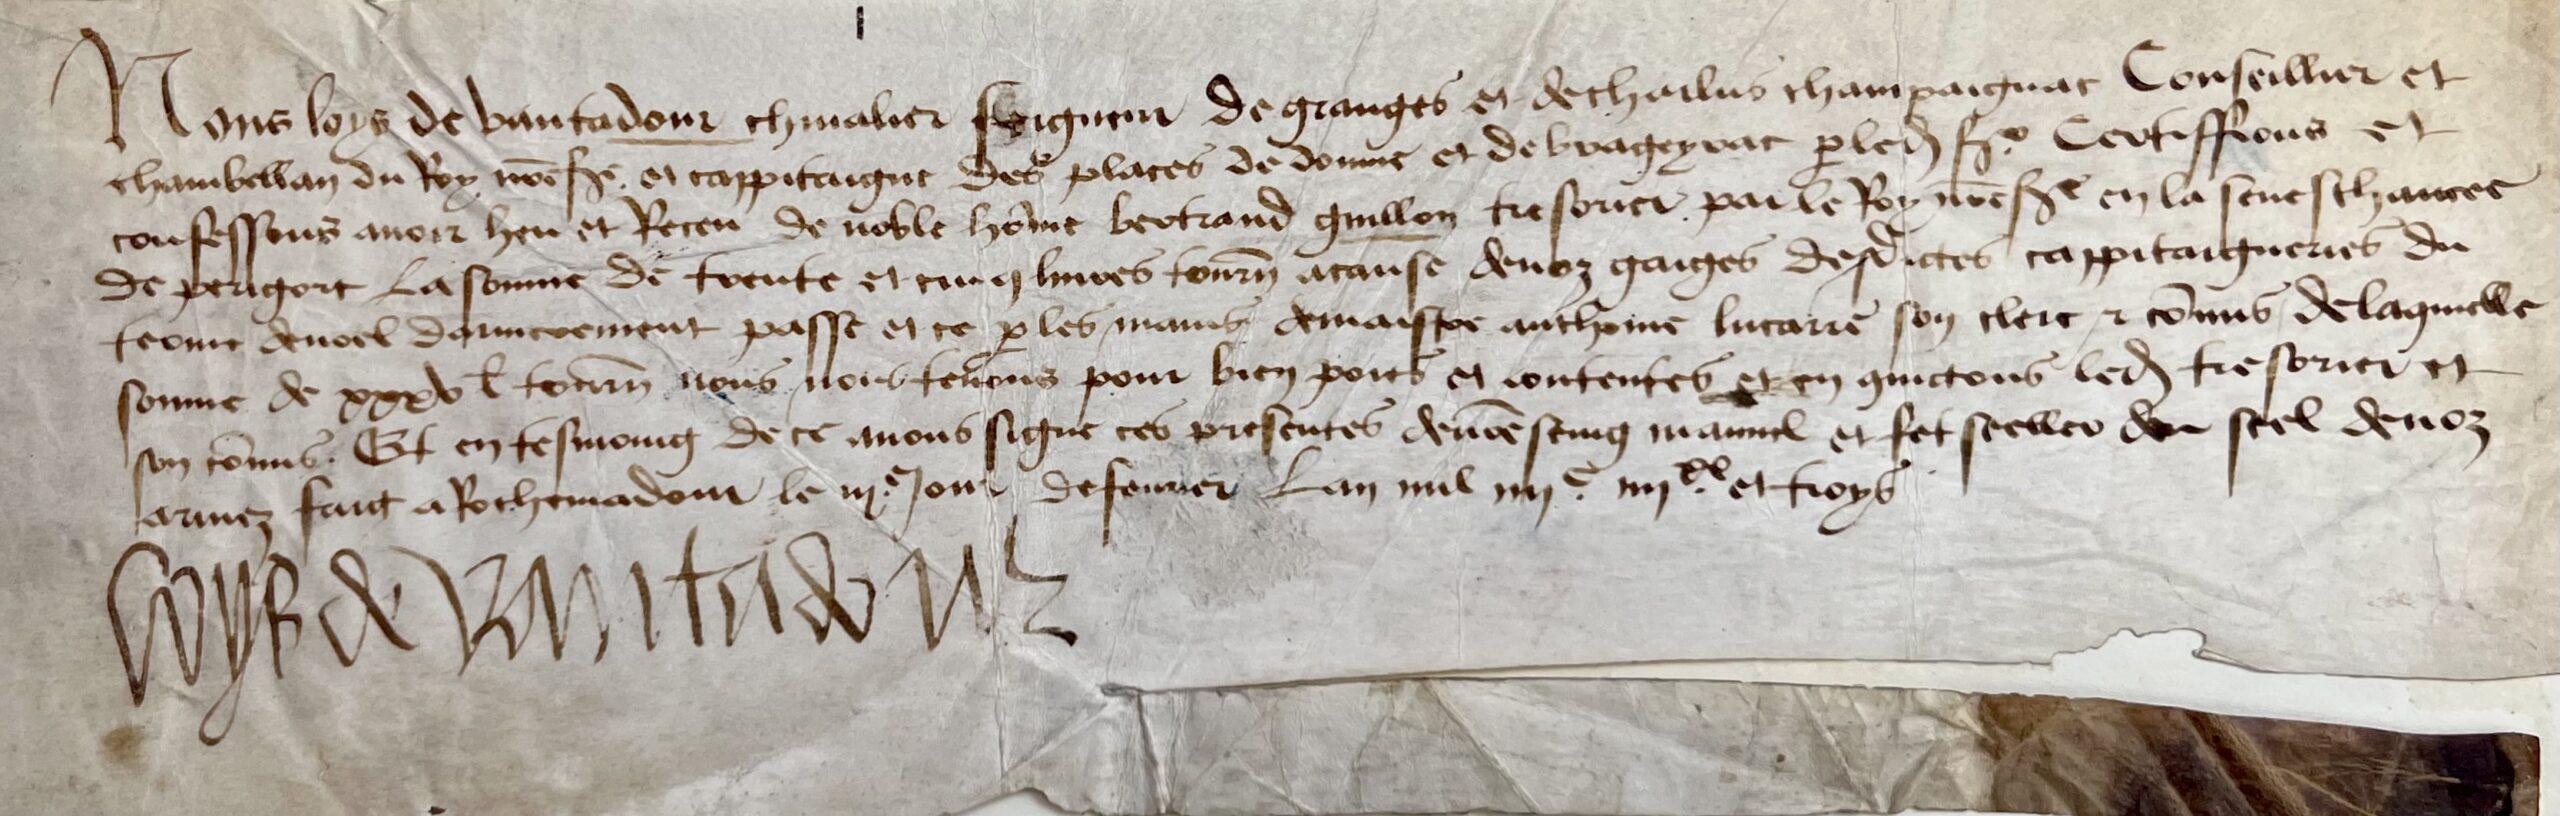 Nous loys de vantadour chevalier seigneur de granges et de charlus champaignac Conseillier et
chambellan du Roy nre sre et cappitaigne des places de domme et de brageyrac p led sr Certiffions et
confessons avoir heu et Receu de noble home bertrand guillon tresorier par le Roy nre sre en la seneschaucee
de perigort La somme de trente et cinq livres tourn a cause de noz gaiges desdictes cappitaigneries du
terme de noel darrierement passe et ce p les mains de maistre anthoine lucarre son clerc et comis de laquelle
somme de xxxv l tourn nous nous tenons pour bien poies et contentes et en quictons led tresorier et
son comis Et en tesmoing de ce avons signe ces presentes de nre seing manuel et fet seeller du scel de noz
armez faict a Rochemadour le iii e jour de fevrier Lan mil iiii c iiii xx et troys
loys de vantadour